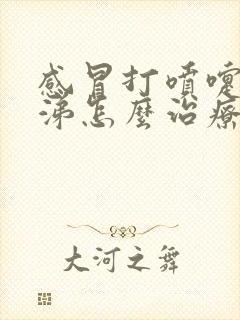 感冒打噴嚏
涕怎麼治療
大河之舞